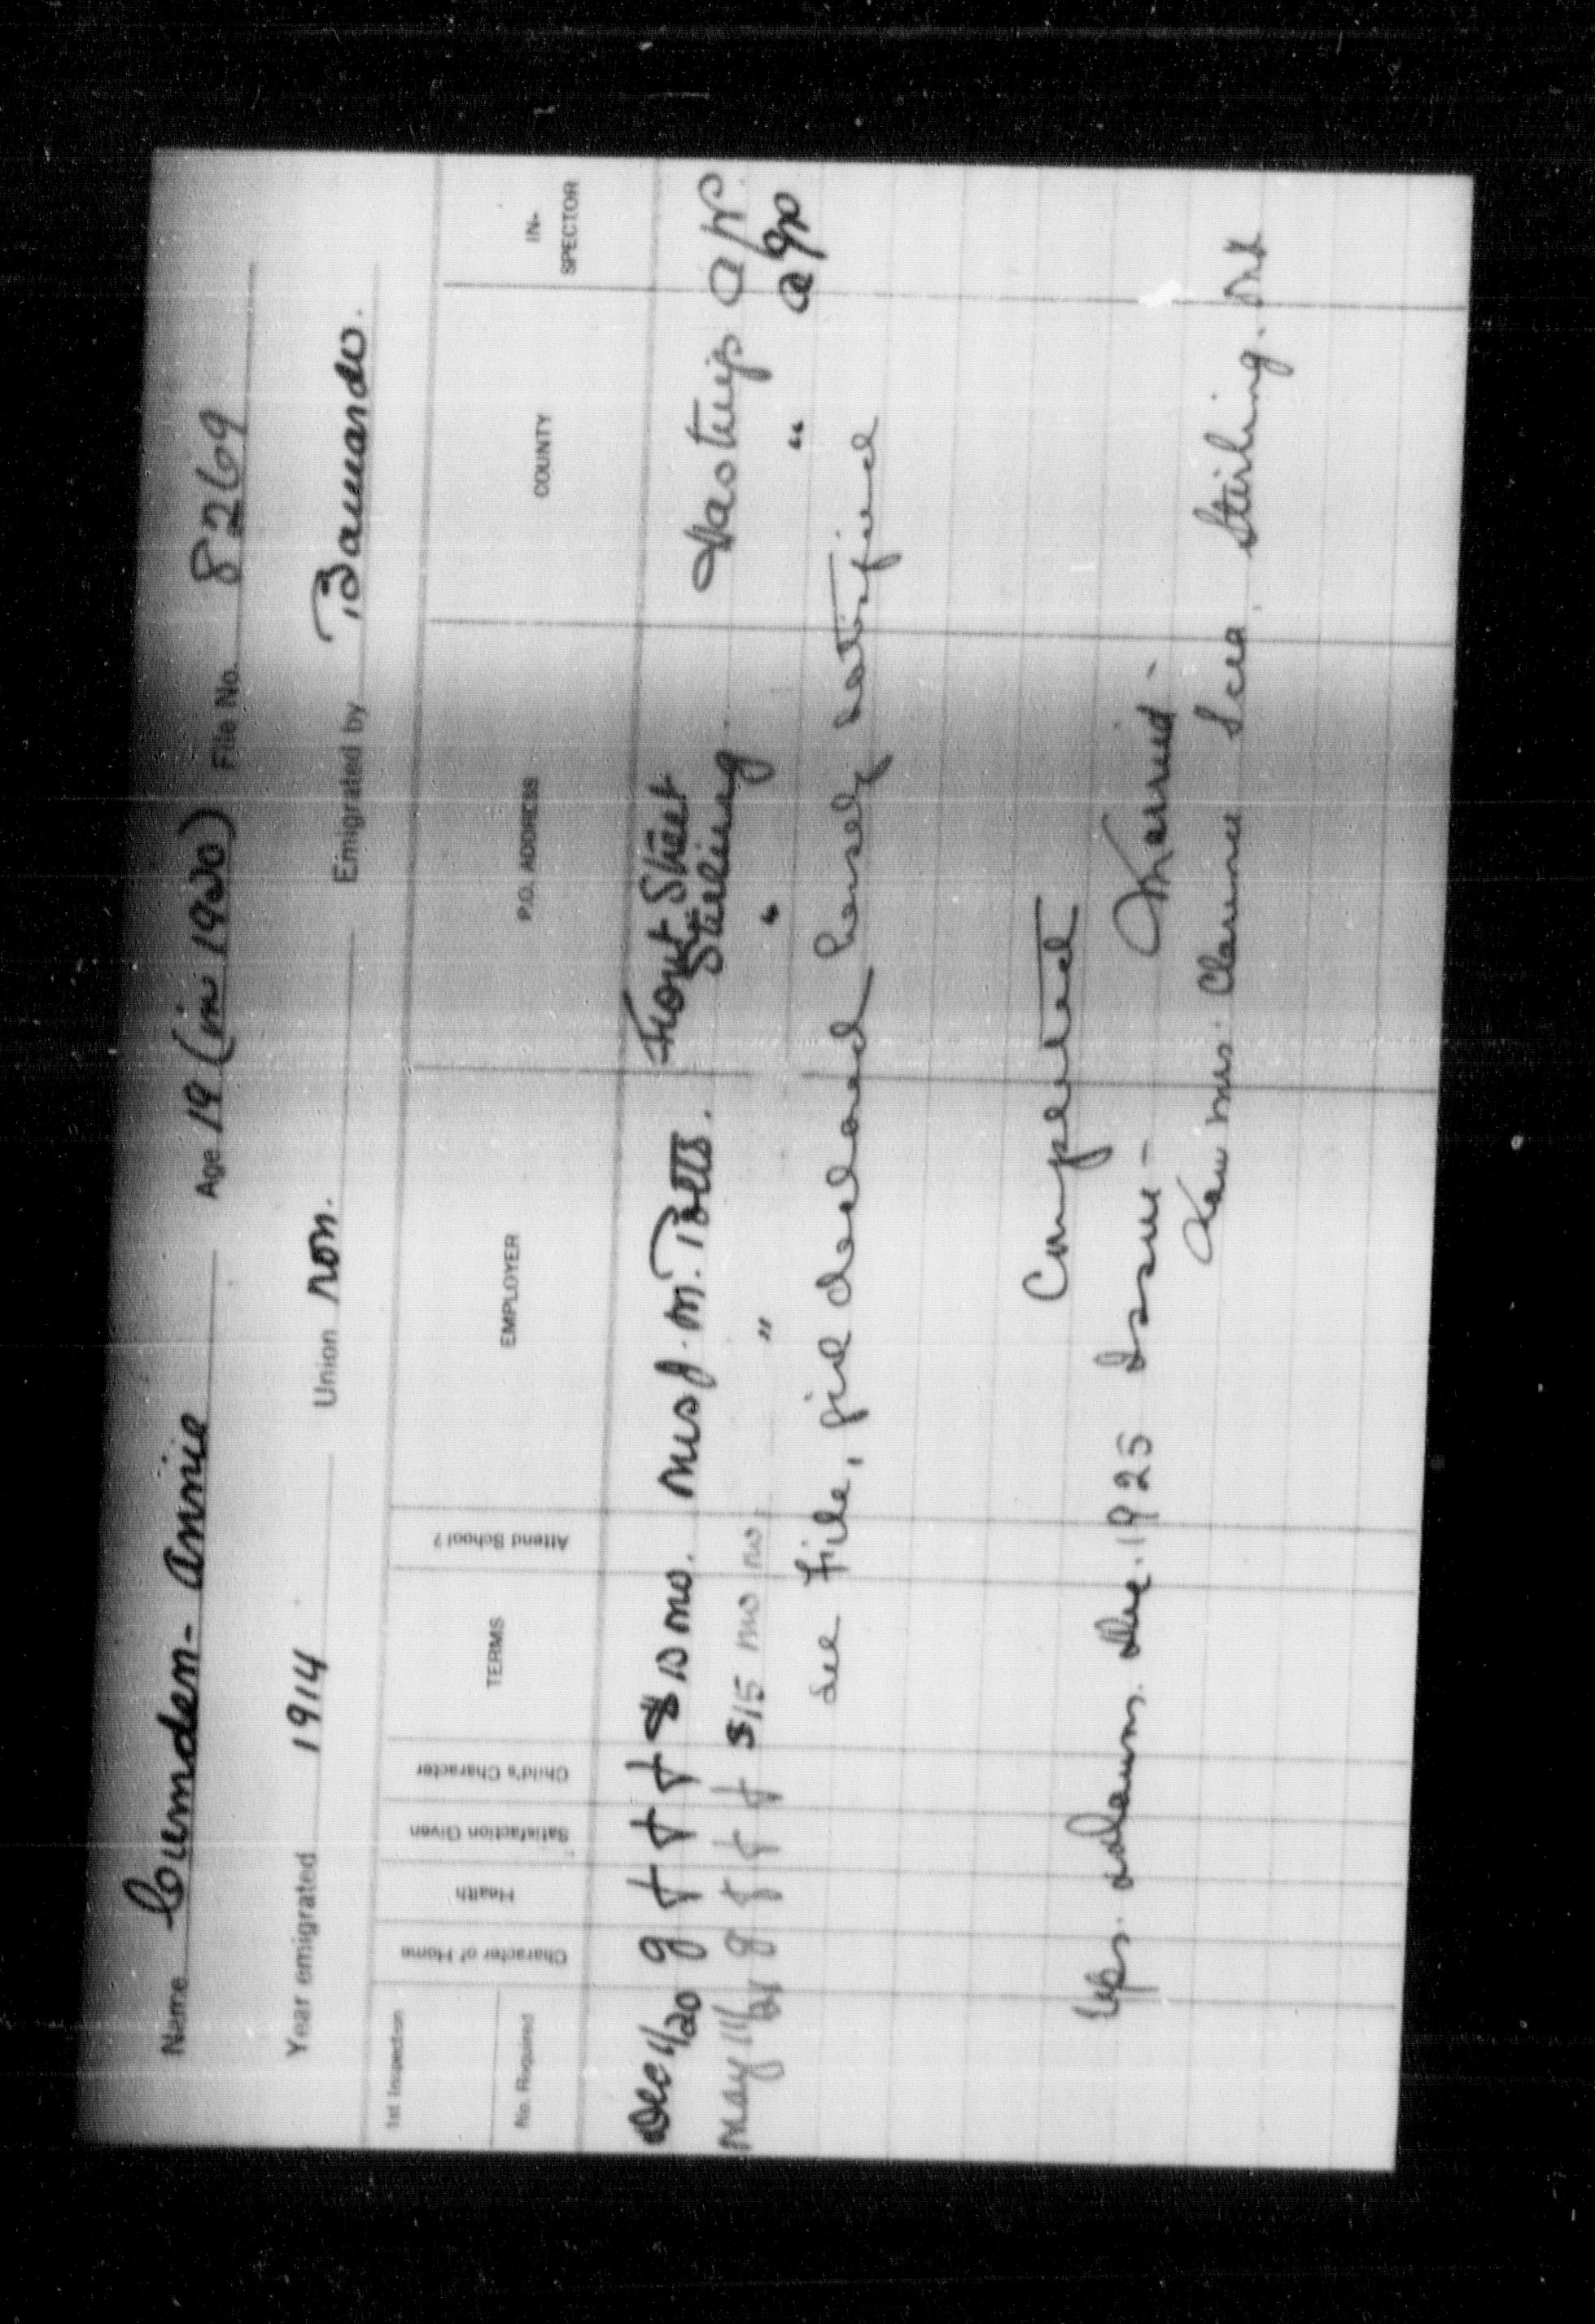 Name Cumden - Annie Age 19 (in 1920) File No. 8269
Year emigrated 1914 Union non. Emigrated by Barnardo.
1st Inspection
No. Required
Character of Home
Health
Satisfaction Given
Child's Character
TERMS
Attend School?
EMPLOYER
P.O. ADDRESS
COUNTY
IN-
SPECTOR
Dec 1/20 g f f f $ mo. Mrs J. M. Potts. Front Street Hastings
Stirling
May 11/21 g f f f $15 mo no " " "
See File, girl declared herself satisfied
Completed
1925 Issue - Married -
Now Mrs. Clarence Stirling. Ont